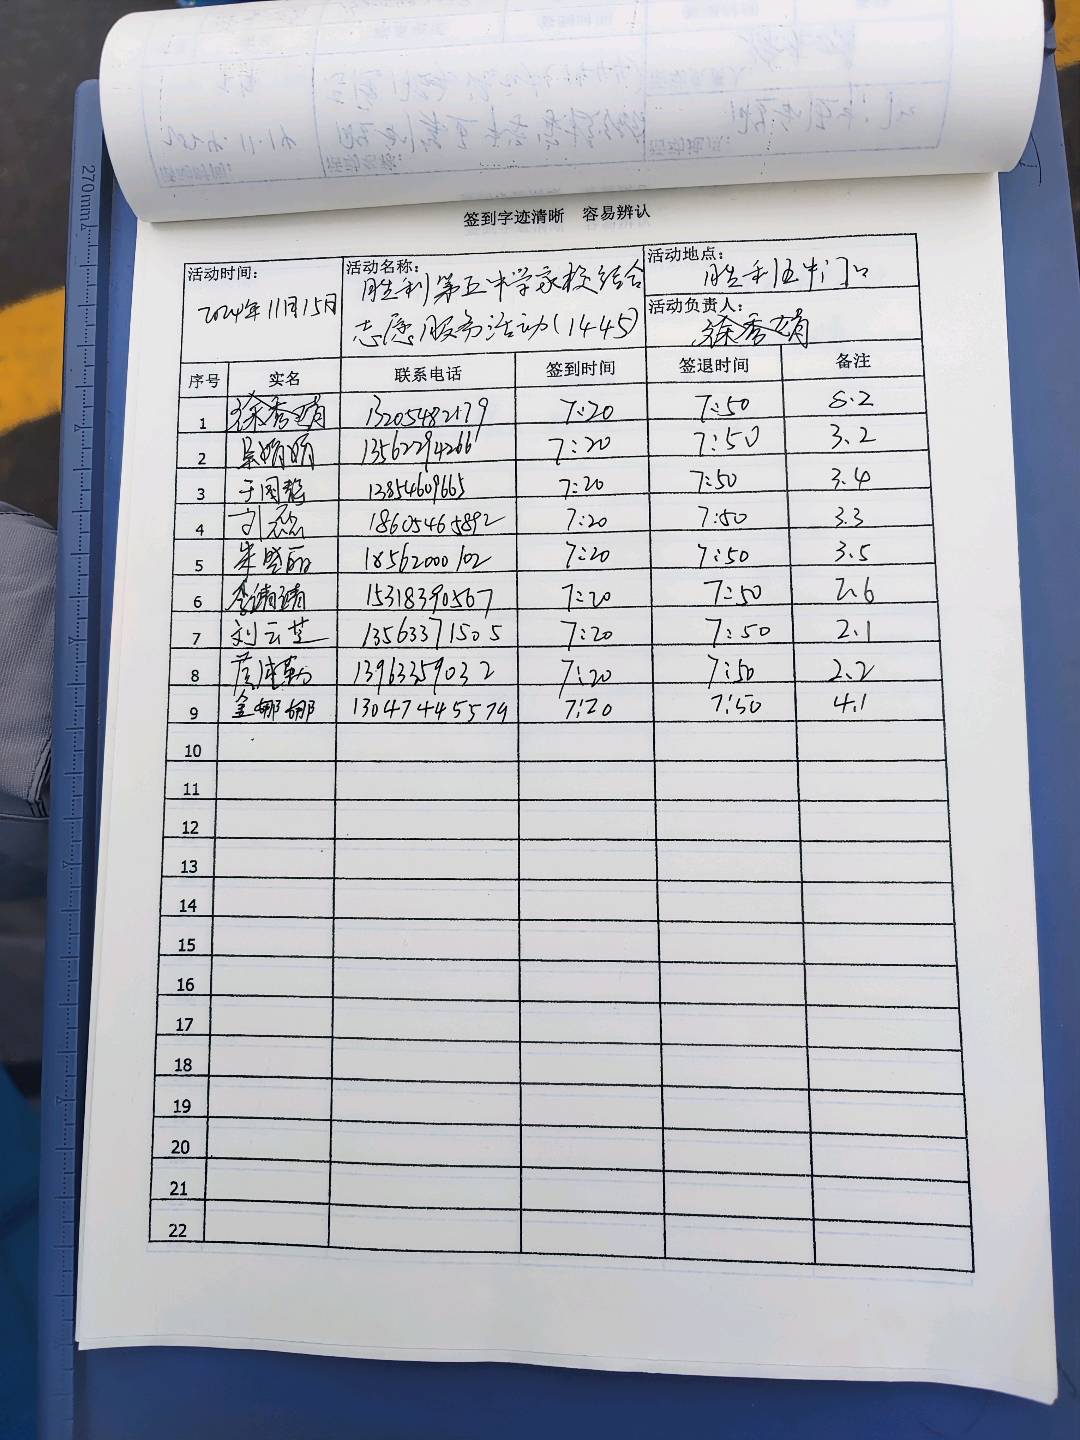 270mm
签到字迹清晰　容易辨认
活动时间：
2024年11月15日
活动名称：
胜利第五中学家校结合
志愿服务活动(1445)
活动地点：
胜利五中门口
活动负责人：
徐秀娟
序号 实名 联系电话 签到时间 签退时间 备注
1 徐秀娟 13205482179 7:20 7:50 8.2
2 吴娟娟 13562294266 7:20 7:50 3.2
3 于国静 13854609665 7:20 7:50 3.4
4 刘磊 18605465892 7:20 7:50 3.3
5 朱晓丽 18562000102 7:20 7:50 3.5
6 李靖靖 15318390567 7:20 7:50 2.6
7 刘云芝 13563371505 7:20 7:50 2.1
8 13963359032 7:20 7:50 2.2
9 金娜娜 13047445579 7:20 7:50 4.1
10
11
12
13
14
15
16
17
18
19
20
21
22